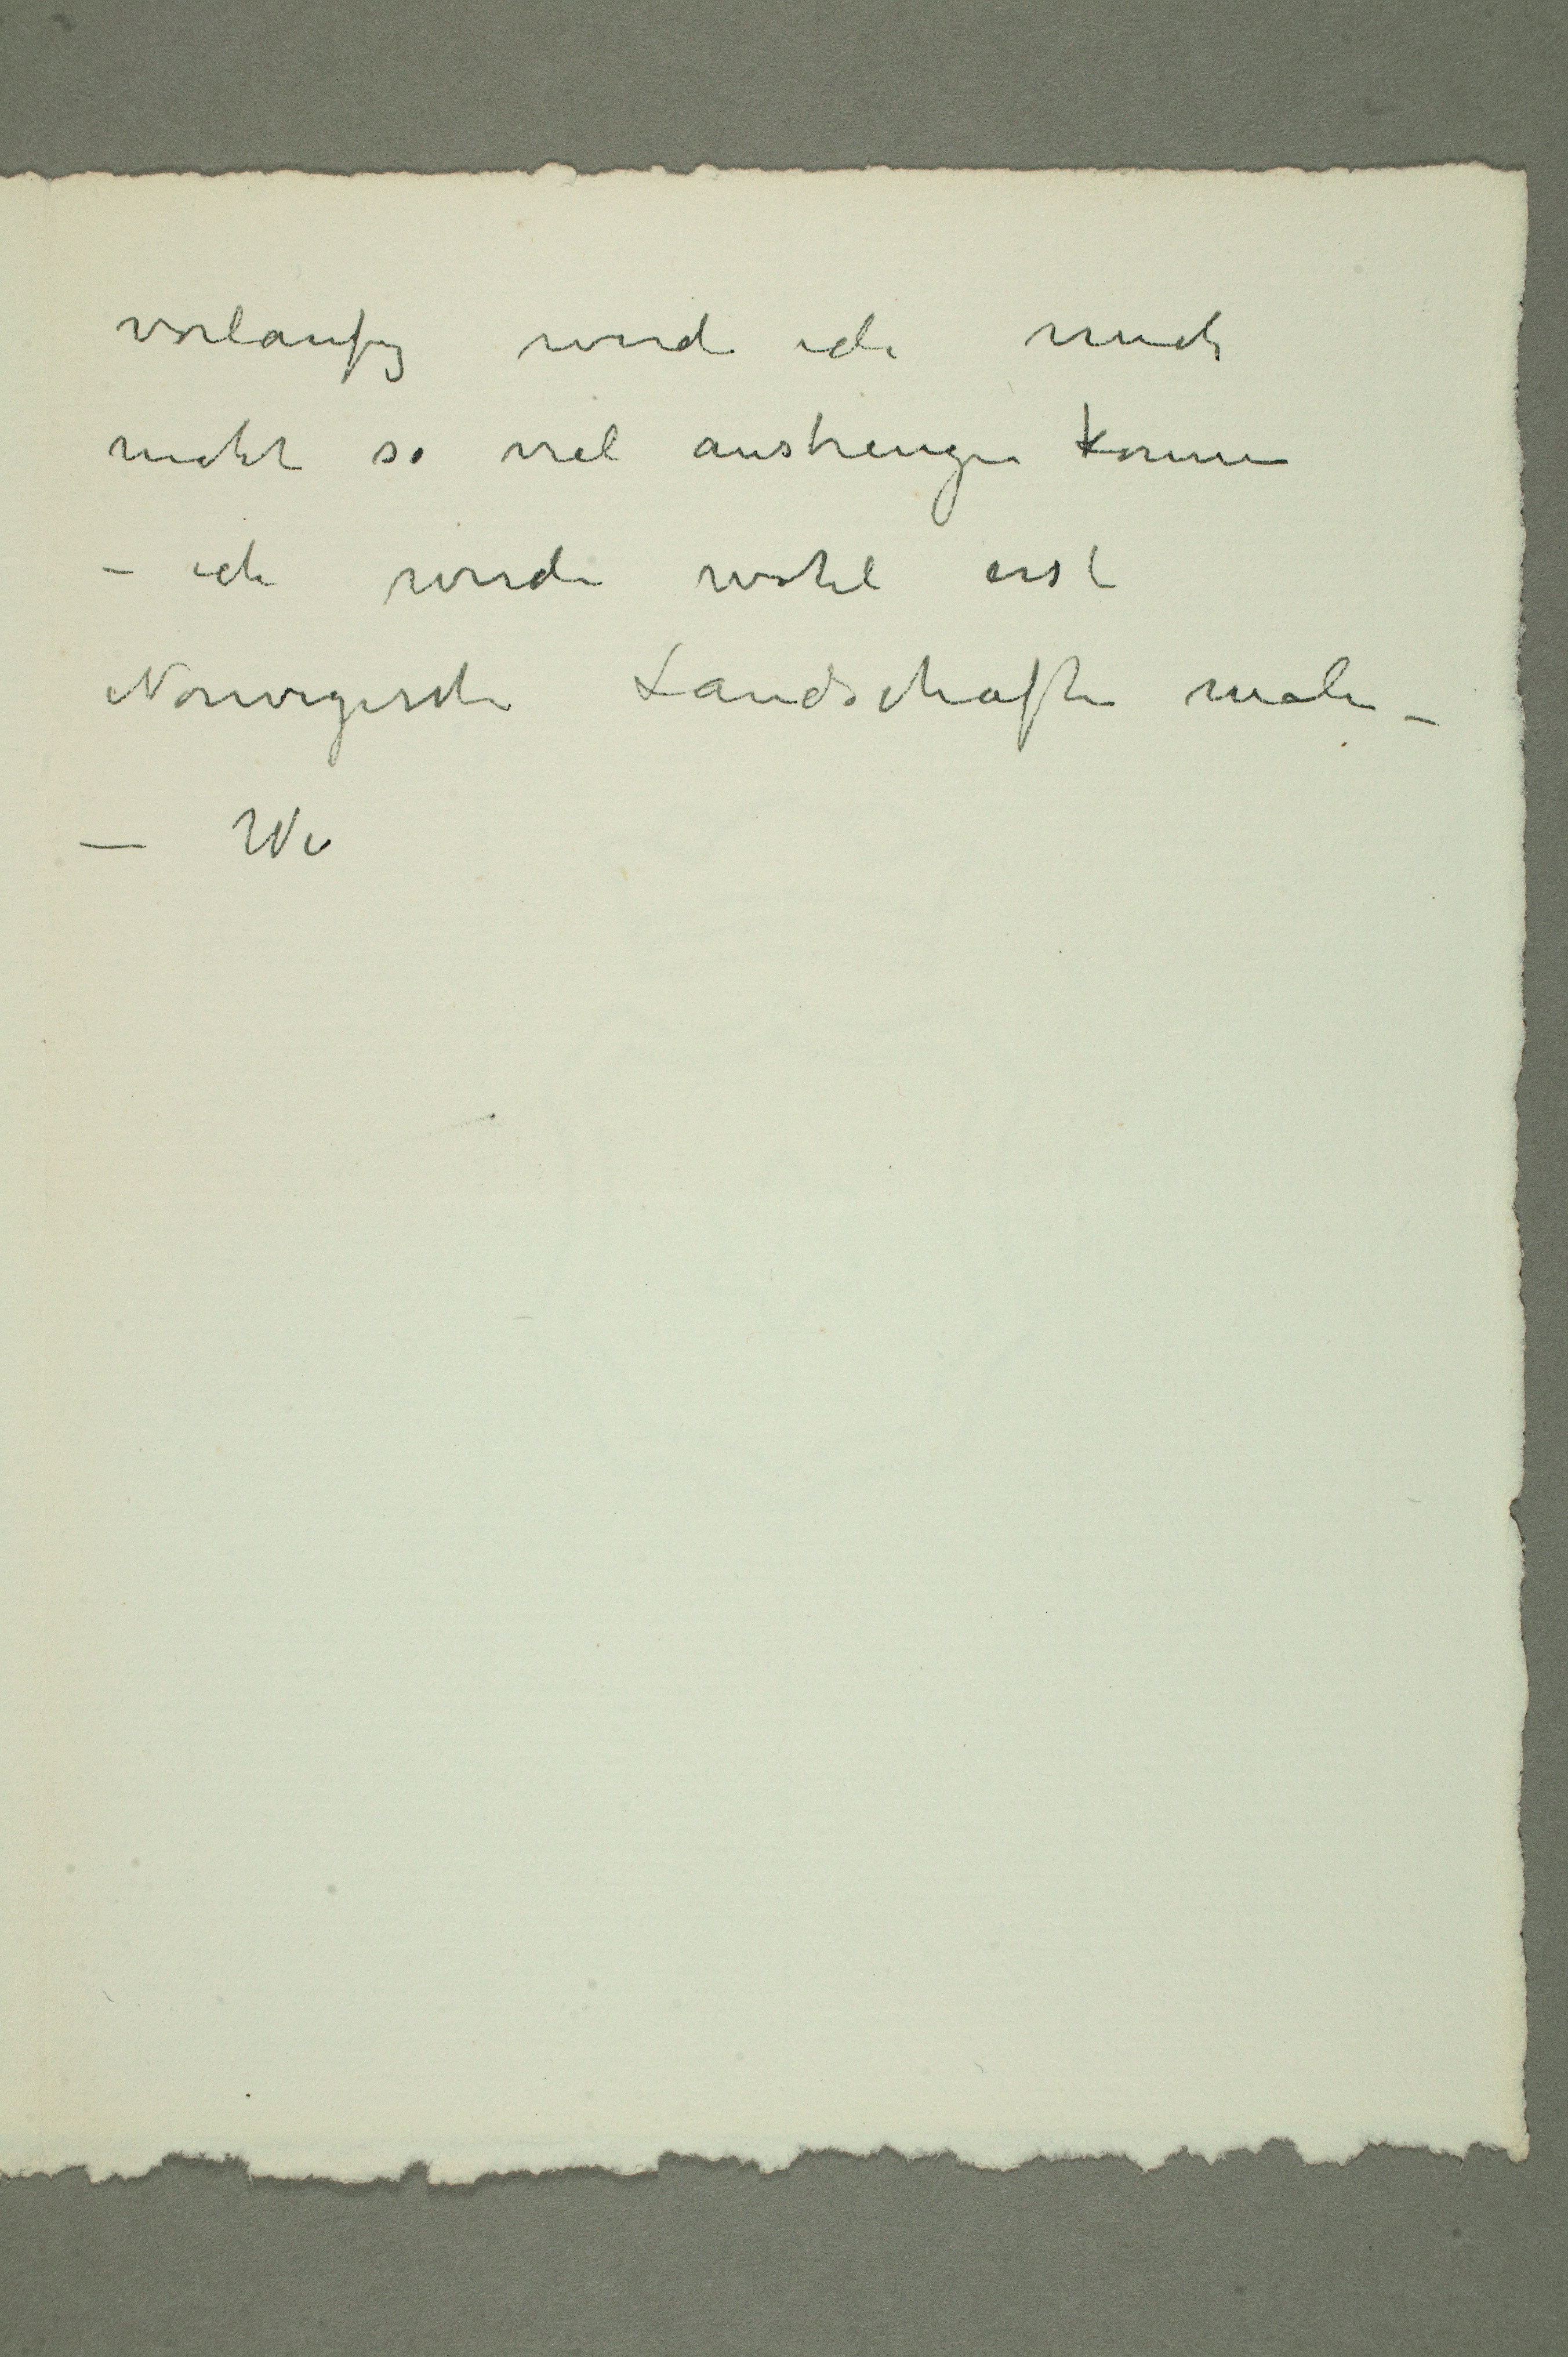 vorlaufig werde ich mich
nicht so viel anstrengen konnen
– ich werde wohl erst
Norwegische Landschaften malen –
— We